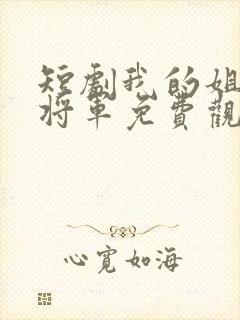 短劇我的姐
將軍免費觀
心寬如海